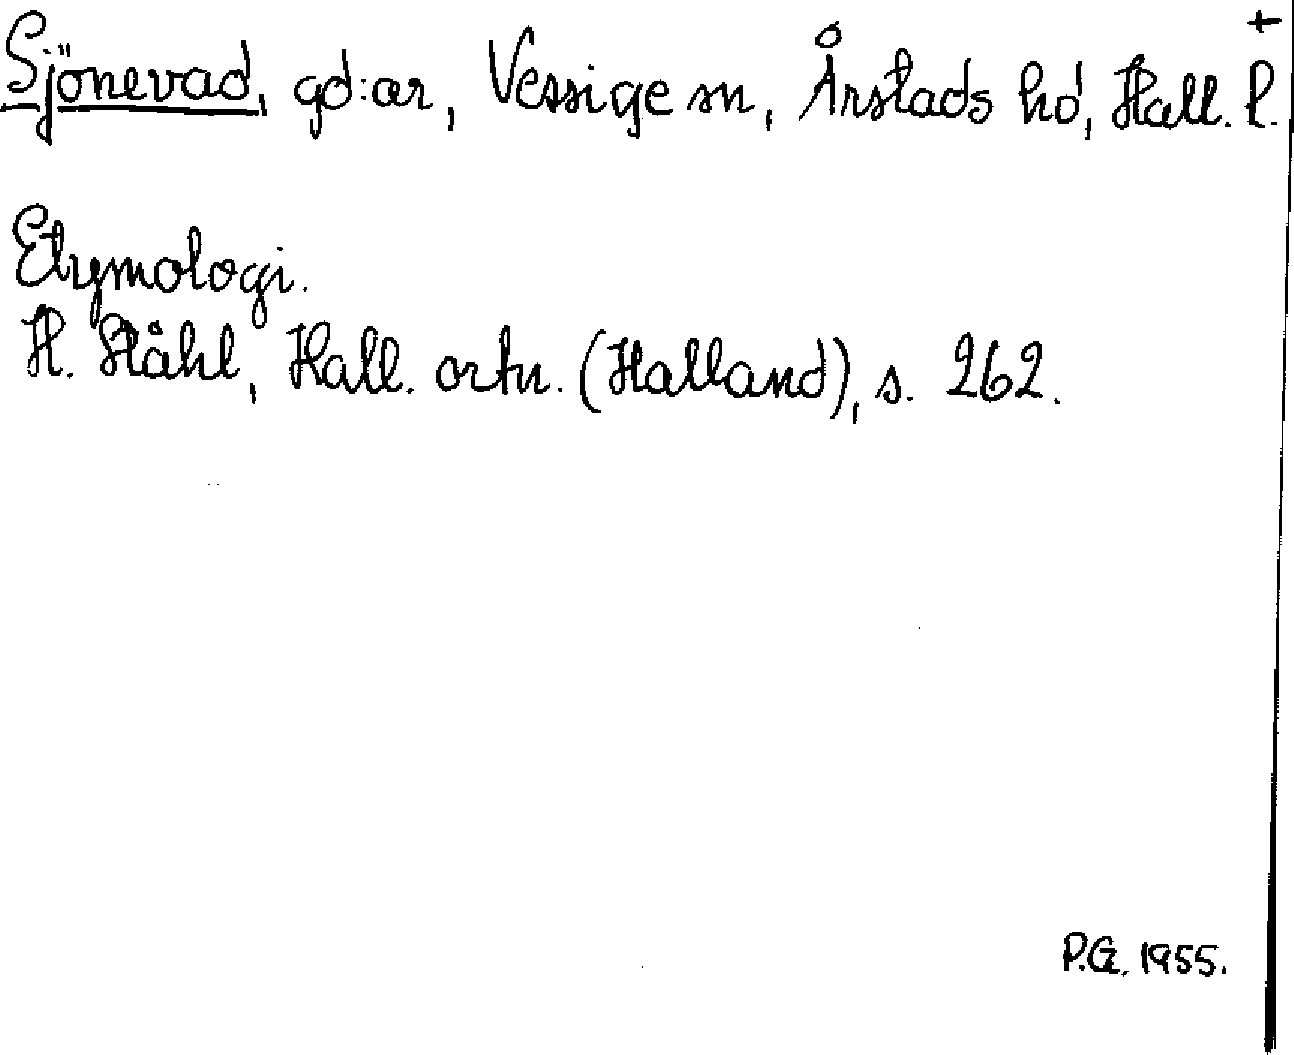 +
Sjönevad, gd:ar, Vessige sn, Årstads hd, Hall. l.
Etymologi.
H. Ståhl, Hall. ortn. (Halland), s. 262.
P.G. 1955.